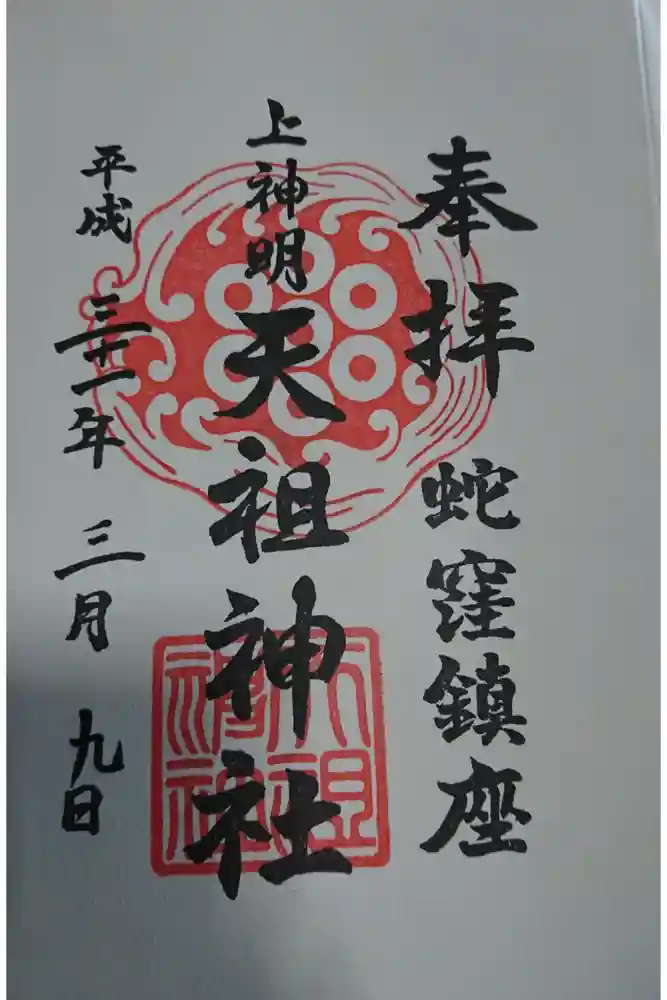 奉拝 蛇窪鎮座
上神明天祖神社
平成三十一年三月九日
天祖
神社